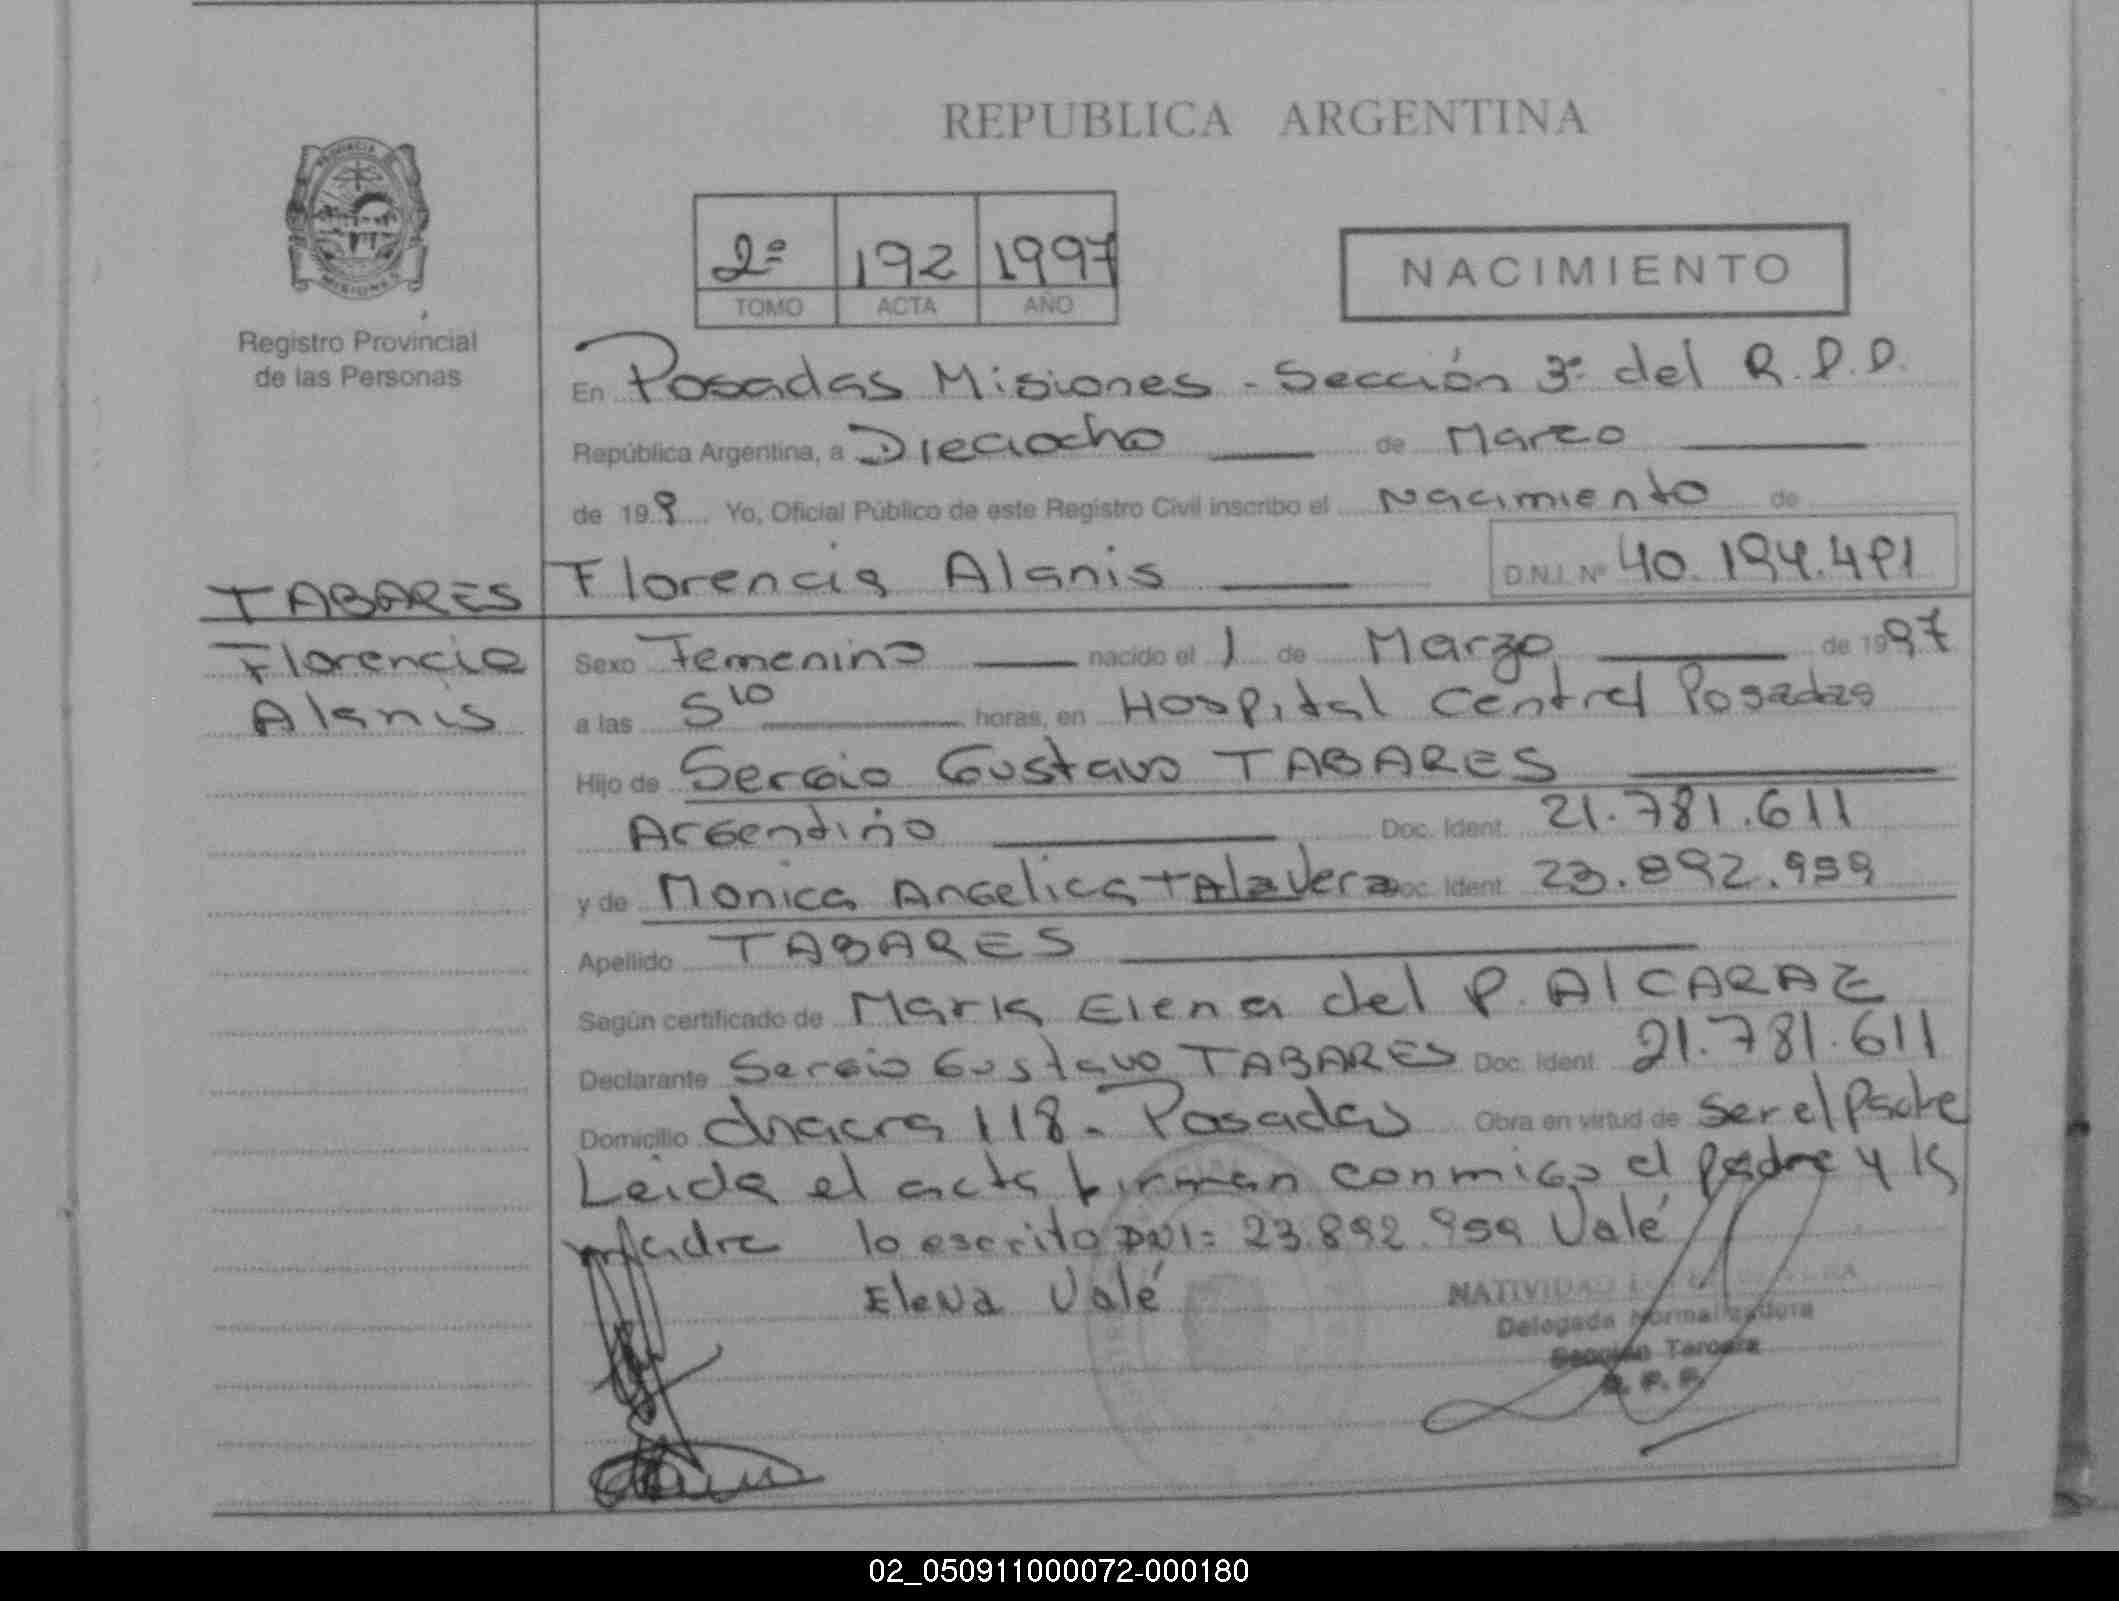 REPUBLICA ARGENTINA
PROVINCIA DE
MISIONES
Registro Provincial
de las Personas
2º 192 1997
TOMO ACTA AÑO
NACIMIENTO
En Posadas Misiones - Sección 3º del R.P.P.
República Argentina, a Dieciocho de Marzo
de 199 Yo, Oficial Público de este Registro Civil inscribo el Nacimiento de
Florencia Alanis D.N.I. Nº 40.194.491
TABARES
Florencia
Alanis
Sexo Femenino nacido el 1 de Marzo de 1997
a las 5 10 horas, en Hospital Central Posadas
Hijo de Sergio Gustavo TABARES
Argentino Doc. Ident. 21.781.611
y de Monica Angelica + Alavera Doc. Ident. 23.892.959
Apellido TABARES
Según certificado de Maria Elena del P. AlCARAZ
Declarante Sergio Gustavo TABARES Doc. Ident. 21.781.611
Domicilio chacra 118 - Posadas Obra en virtud de Ser el Padre
Leida el acta firman conmigo el padre y la
madre lo escrito DNI= 23.892.959 Valé
Elena Valé
NATIVIDAD
Delegada Normalizadora
Sección Tercera
R. P. P.
02_050911000072-000180